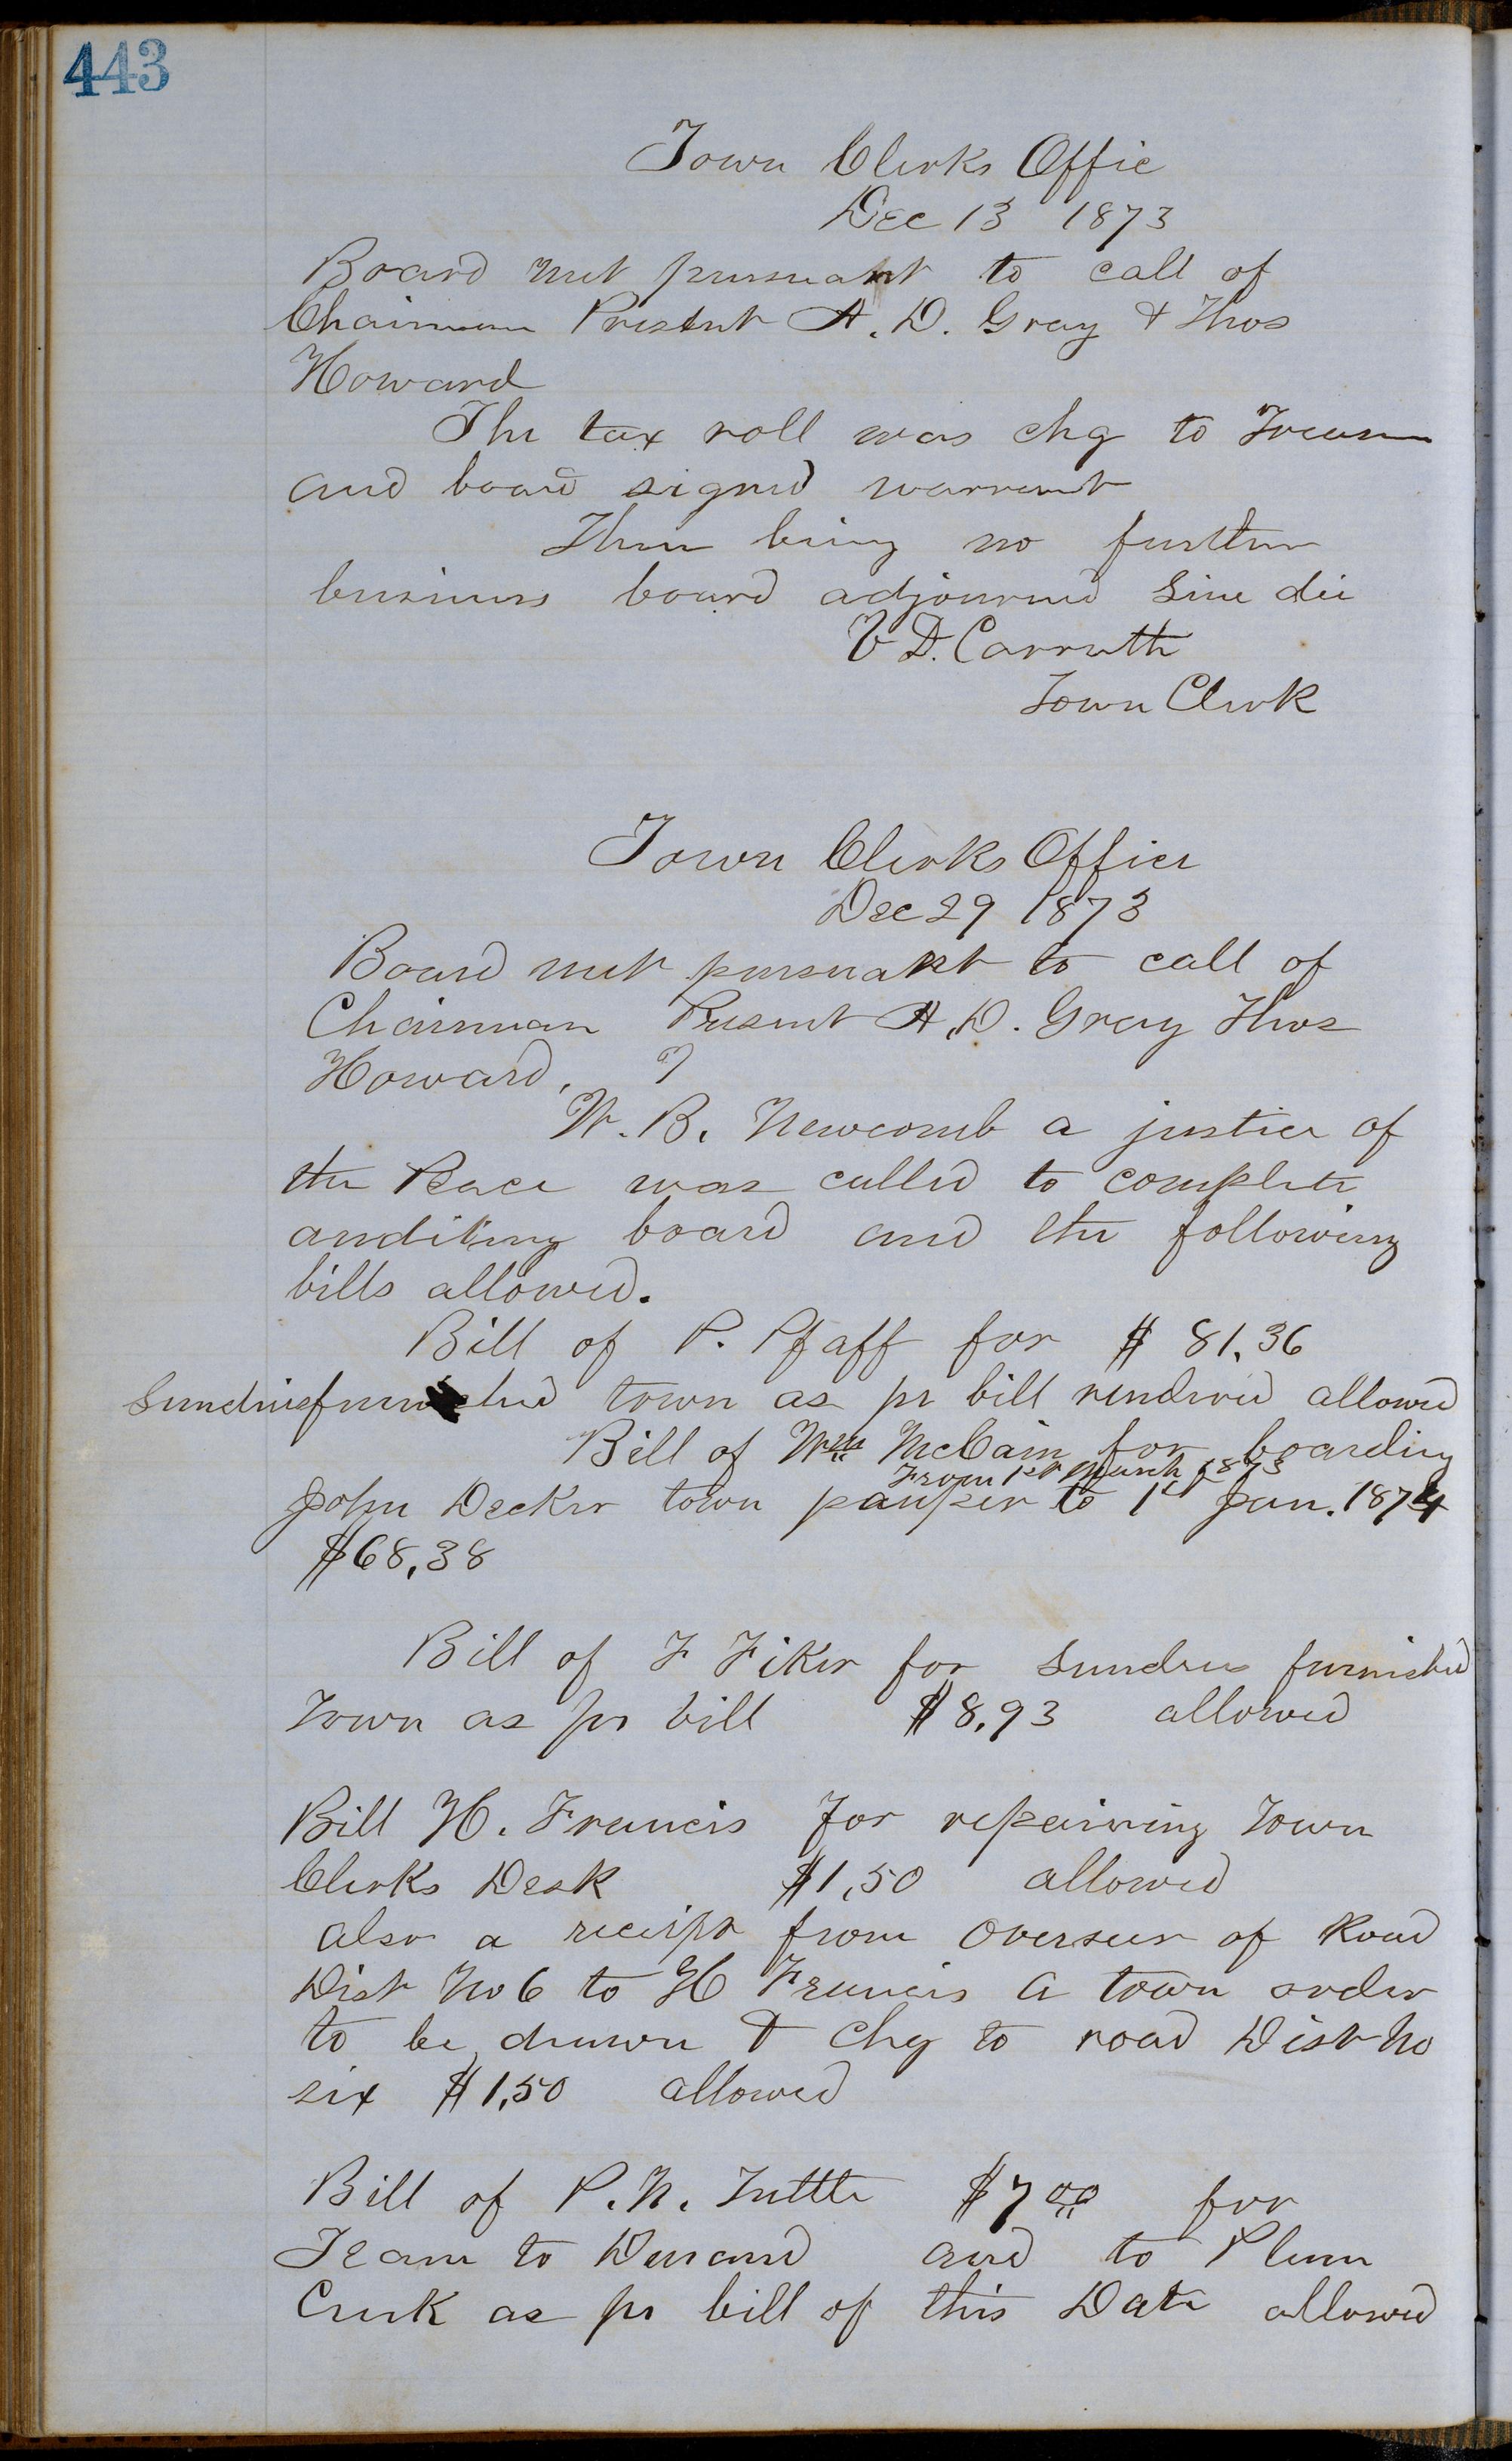 443
Town Clerks Offic
Dec 13 1873
Board met pursuant to call of
Chairman Present A. D. Gray & Thos
Howard
The tax roll was chg to Treasur
and board signed warrant
There being no further
business board adjourned Sine die
V D. Carruth
Town Clerk
Town Clerks Office
Dec 29 1873
Board met pursuant to call of
Chairman Present A. D. Gray Thos
Howard,
W. B. Newcomb a justice of
the Peace was called to complete
auditing board and the following
bills allowed.
Bill of P. Pfaff for $ 81.36
Sundries furnished town as pr bill rendered allowed
Bill of Wm McCain for boarding
From 1st March 1873
John Decker town pauper to 1st Jan. 1874
$68.38
Bill of F Fiker for Sundries furnished
Town as pr bill $8.93 allowed
Bill H. Francis for repairing Town
Clerks Desk $1,50 allowed
also a receipt from Overseer of Road
Dist No 6 to H Francis a town order
to be drawn & chg to road Dist No
six $1,50 allowed
Bill of P. N. Tuttle $7 00 for
Team to Durand and to Plum
Creek as pr bill of this Date allowed